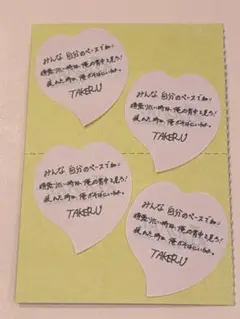 みんな 自分のペースで
頑張りたい時は、俺の背中を見ろ！
疲れた時は、俺がそばにいるから。
TAKERU
みんな 自分のペースで
頑張りたい時は、俺の背中を見ろ！
疲れた時は、俺がそばにいるから。
TAKERU
みんな 自分のペースで
頑張りたい時は、俺の背中を見ろ！
疲れた時は、俺がそばにいるから。
TAKERU
みんな 自分のペースで
頑張りたい時は、俺の背中を見ろ！
疲れた時は、俺がそばにいるから。
TAKERU